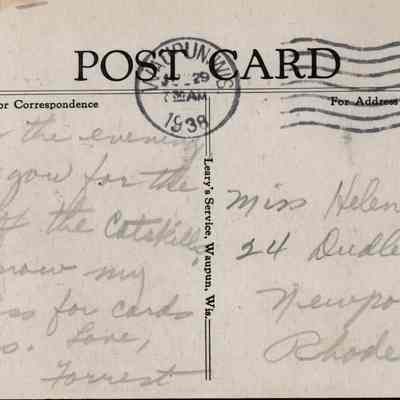 POST CARD
WAUPUN, WIS.
29
7 30 AM
1938
or Correspondence
For Address
the evening
you for the
the Catskills
know my
ss for cards
s. Love,
Forrest
Leary's Service, Waupun, Wis.
Miss Helen
24 Dudle
Newpo
Rhode